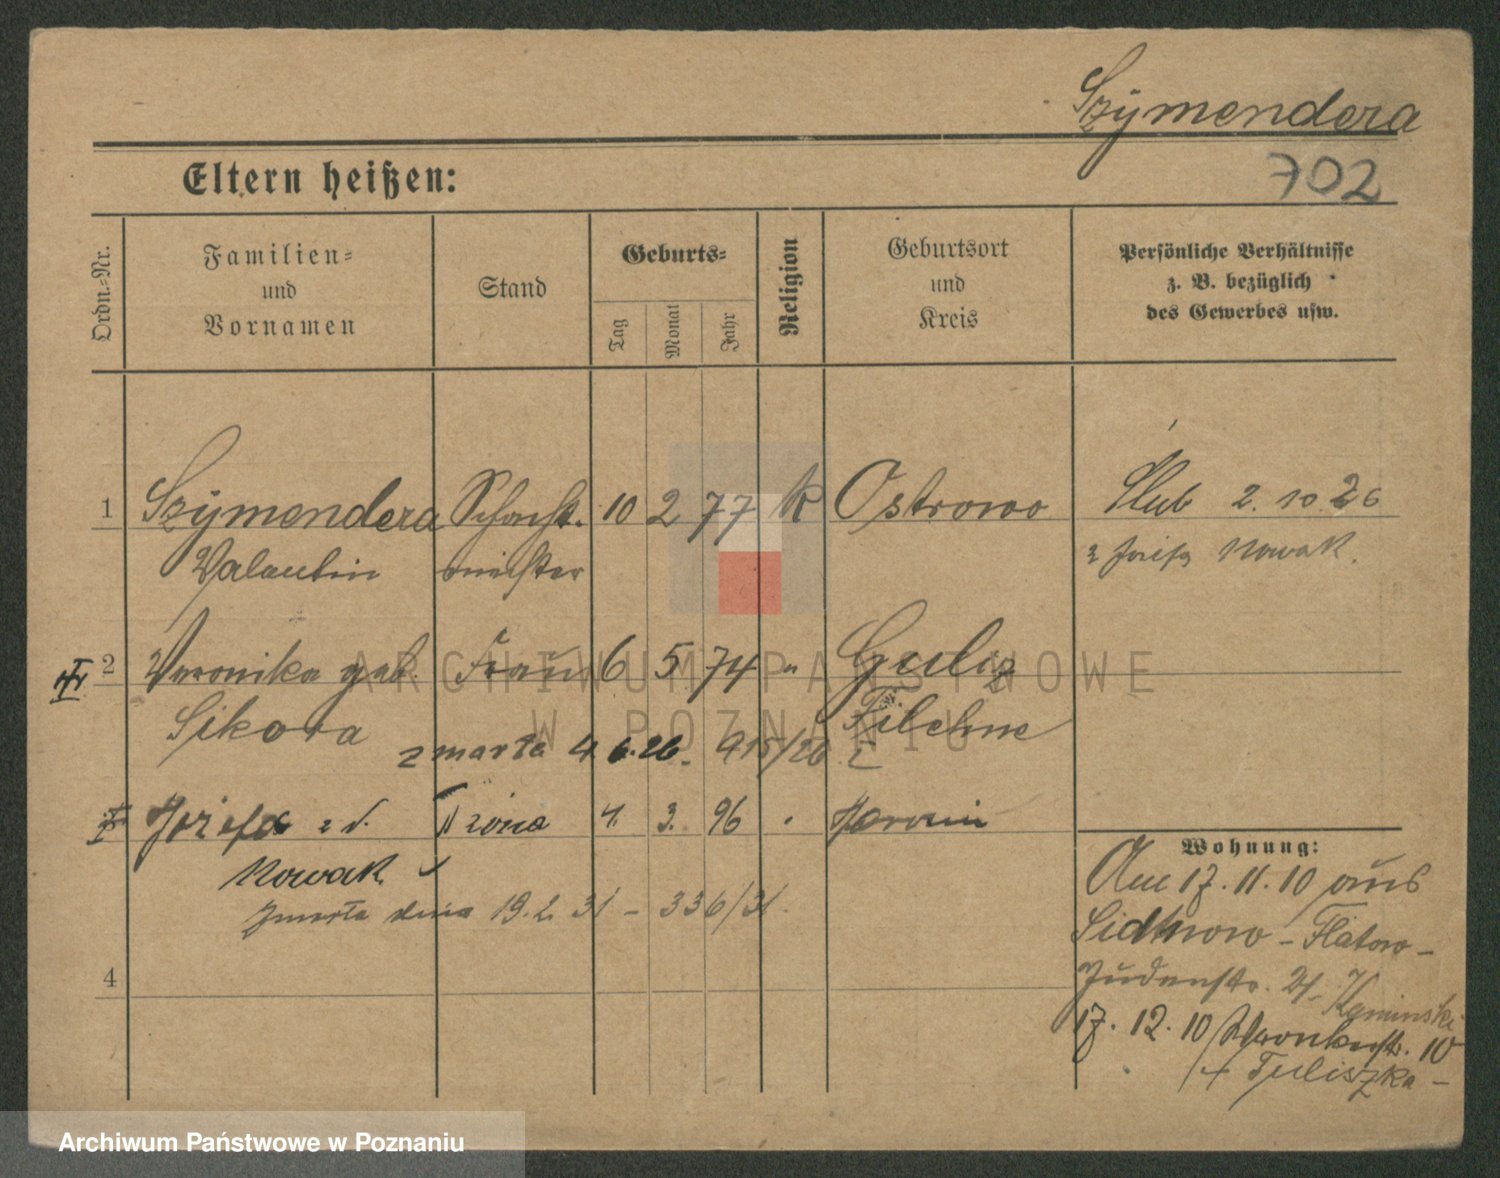 Szymendera
702
Eltern heißen:
Ordn.-Nr.
Familien- und Vornamen
Stand
Geburts-
Tag
Monat
Jahr
Religion
Geburtsort und Kreis
Persönliche Verhältnisse z. B. bezüglich des Gewerbes usw.
1 Szymendera Schacht- 10 2 77 k Ostrowo Ślub 2. 10. 26
Valentin meister z Józefą Nowak.
2 Veronika geb. Frau 6 5 74 " Gulcz
Sikora Filehne
zmarła 4. 6. 26. 915/26
Józefa z d. żona 4. 3. 96
Nowak
zmarła dnia 19. 2. 31 - 336/31
4
Wohnung:
Am 17. 11. 10 aus
- Flatow -
Judenstr. Kaminski
17. 12. 10 Wronkerstr. 10
Tuliszka -
ARCHIWUM PAŃSTWOWE
W POZNANIU
Archiwum Państwowe w Poznaniu